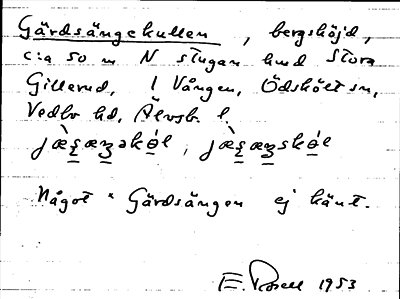 Gärdsängekullen, bergshöjd,
c:a 50 m N stugan hmd Stora
Gillerud, i Vången, Ödskölt sn,
Vedbo hd, Älvsb. l.
Något "Gärdsängen ej känt.
E. Rosell 1953